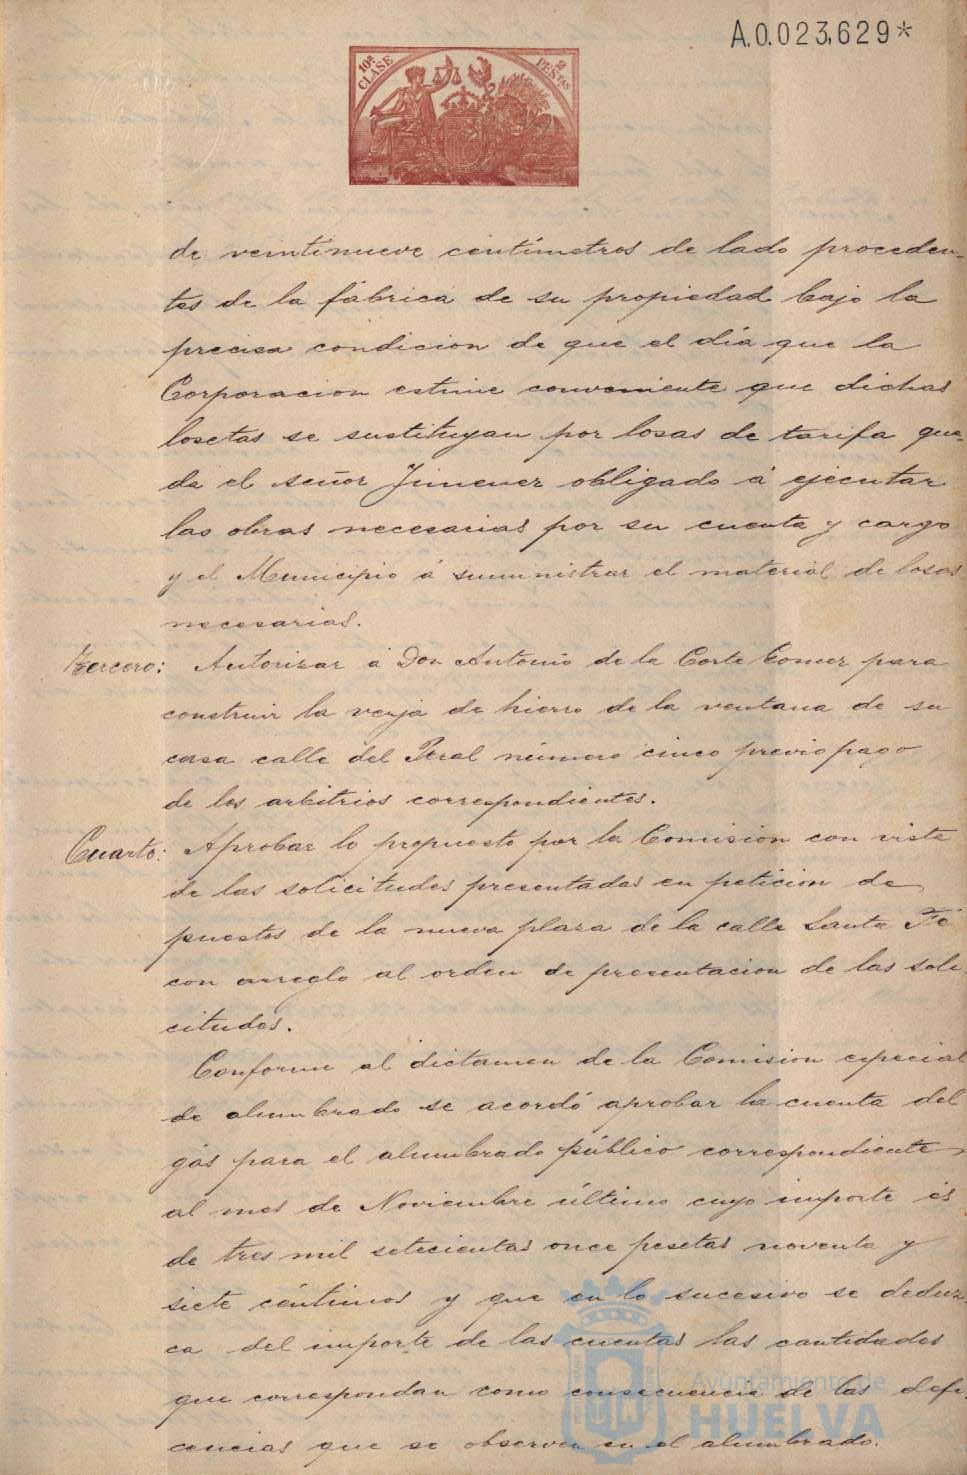 A.0.023,629*
10ª CLASE
2 PESTAS
de veintinueve centímetros de lado proceden-
tes de la fábrica de su propiedad bajo la
precisa condicion de que el día que la
Corporacion estime conveniente que dichas
losetas se sustituyan por losas de tarifa que-
da el señor Jimenez obligado á ejecutar
las obras necesarias por su cuenta y cargo
y el Municipio á suministrar el material de losas
necesarias.
Tercero: Autorizar á Don Antonio de la Corte Gomez para
construir la verja de hierro de la ventana de su
casa calle del Peral número cinco previo pago
de los arbitrios correspondientes.
Cuarto: Aprobar lo propuesto por la Comision con vista
de las solicitudes presentadas en peticion de
puestos de la nueva plaza de la calle Santa Fé
con arreglo al orden de presentacion de las soli
citudes.
Conforme al dictamen de la Comision especial
de alumbrado se acordó aprobar la cuenta del
gás para el alumbrado público correspondiente
al mes de Noviembre último cuyo importe és
de tres mil setecientas once pesetas noventa y
siete céntimos y que en lo sucesivo se deduz
ca del importe de las cuentas las cantidades
que correspondan como consecuencia de las defi
ciencias que se observen en el alumbrado.
Ayuntamiento de
HUELVA